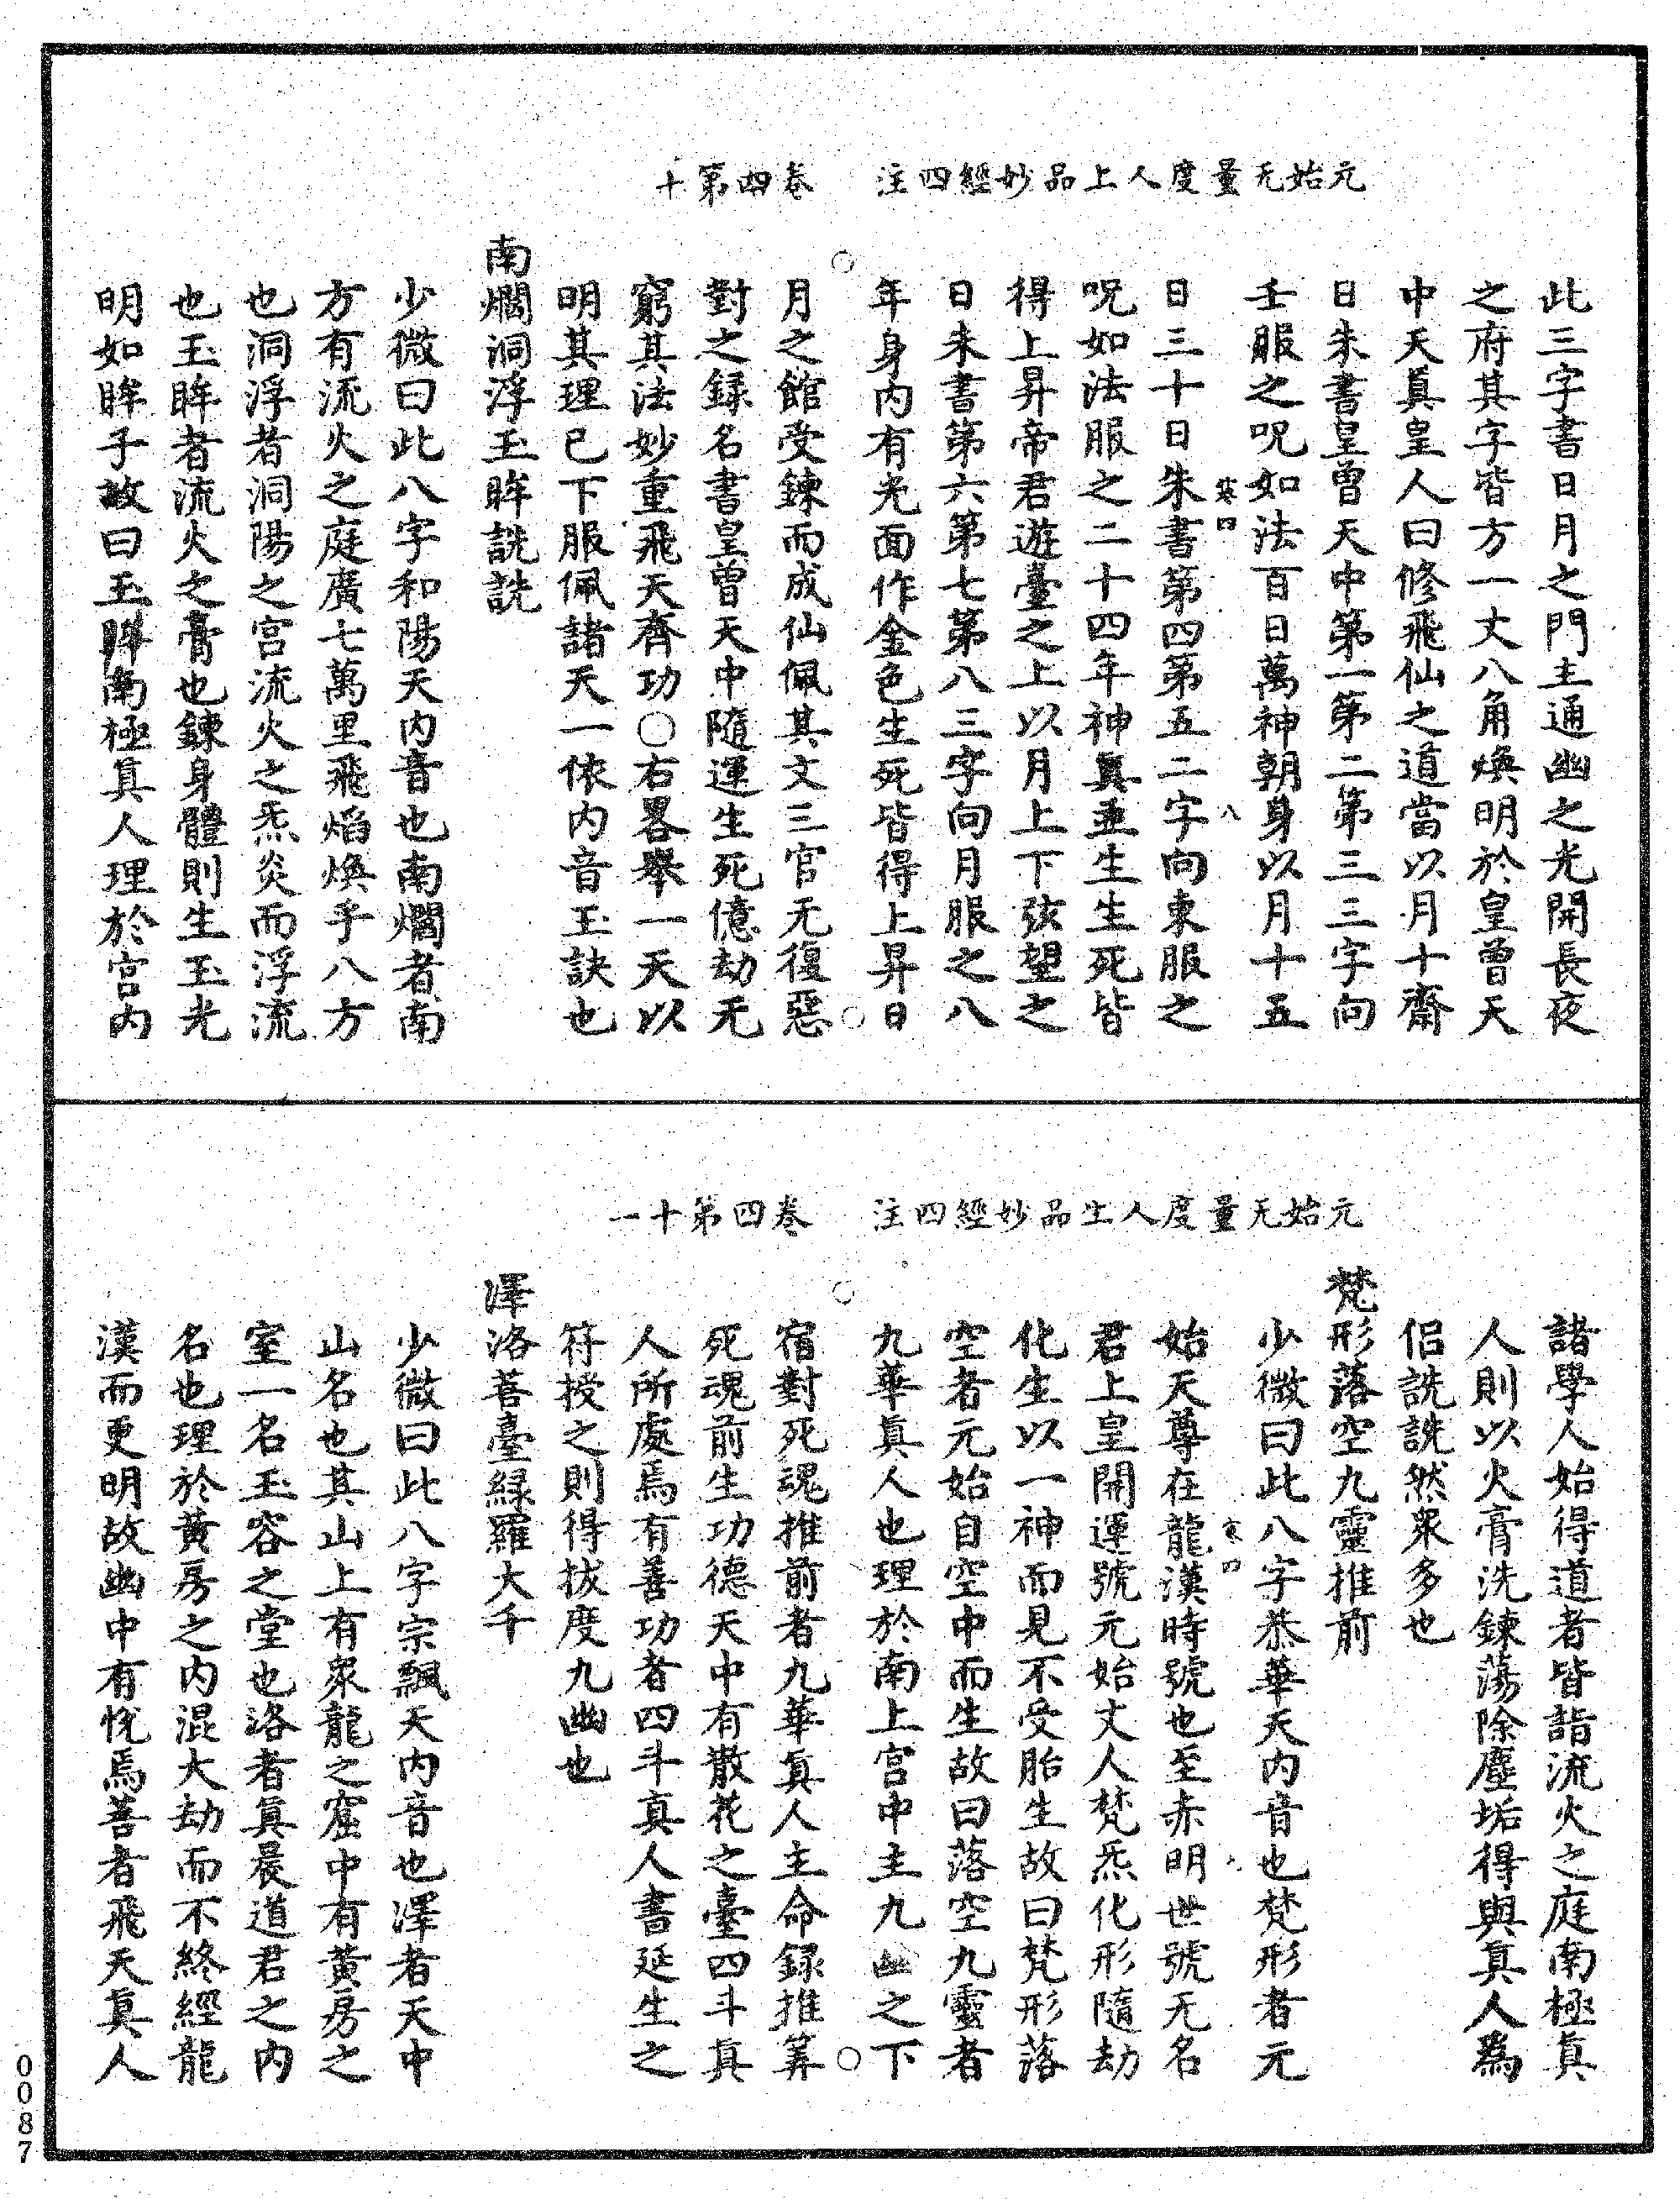 元始无量度人上品妙經四注　卷四第十
此三字書日月之門主通幽之光開長夜
之府其字皆方一丈八角煥明於皇曾天
中天眞皇人曰修飛仙之道當以月十齋
日朱書皇曾天中第一第二第三三字向
壬服之呪如法百日萬神朝身以月十五
寒四　八
日三十日朱書第四第五二字向東服之
呪如法服之二十四年神眞並生生死皆
得上昇帝君遊臺之上以月上下弦望之
日朱書第六第七第八三字向月服之八
年身內有光面作金色生死皆得上昇日
月之館受鍊而成仙佩其文三官无復惡
對之録名書皇曾天中隨運生死億劫无
窮其法妙重飛天齊功○右畧舉一天以
明其理已下服佩諸天一依內音玉訣也
南爓洞浮玉眸詵詵
少微曰此八字和陽天內音也南爓者南
方有流火之庭廣七萬里飛焰煥乎八方
也洞浮者洞陽之宮流火之炁炎而浮流
也玉眸者流火之膏也鍊身體則生玉光
明如眸子故曰玉眸南極眞人理於宮內
元始无量度人上品妙經四注　卷四第十一
諸學人始得道者皆詣流火之庭南極眞
人則以火膏洗鍊蕩除塵垢得與眞人爲
侶詵詵然眾多也
梵形落空九靈推前
少微曰此八字恭華天內音也梵形者元
寒四　八
始天尊在龍漢時號也至赤明世號无名
君上皇開運號元始丈人梵炁化形隨劫
化生以一神而見不受胎生故曰梵形落
空者元始自空中而生故曰落空九靈者
九華眞人也理於南上宮中主九幽之下
宿對死魂推前者九華眞人主命録推筭
死魂前生功德天中有散花之臺四斗眞
人所處焉有善功者四斗真人書延生之
符授之則得拔度九幽也
澤洛菩臺緑羅大千
少微曰此八字宗飄天內音也澤者天中
山名也其山上有眾龍之窟中有黃房之
室一名玉容之堂也洛者眞晨道君之內
名也理於黃房之內混大劫而不終經龍
漢而更明故幽中有恍焉菩者飛天眞人
0087